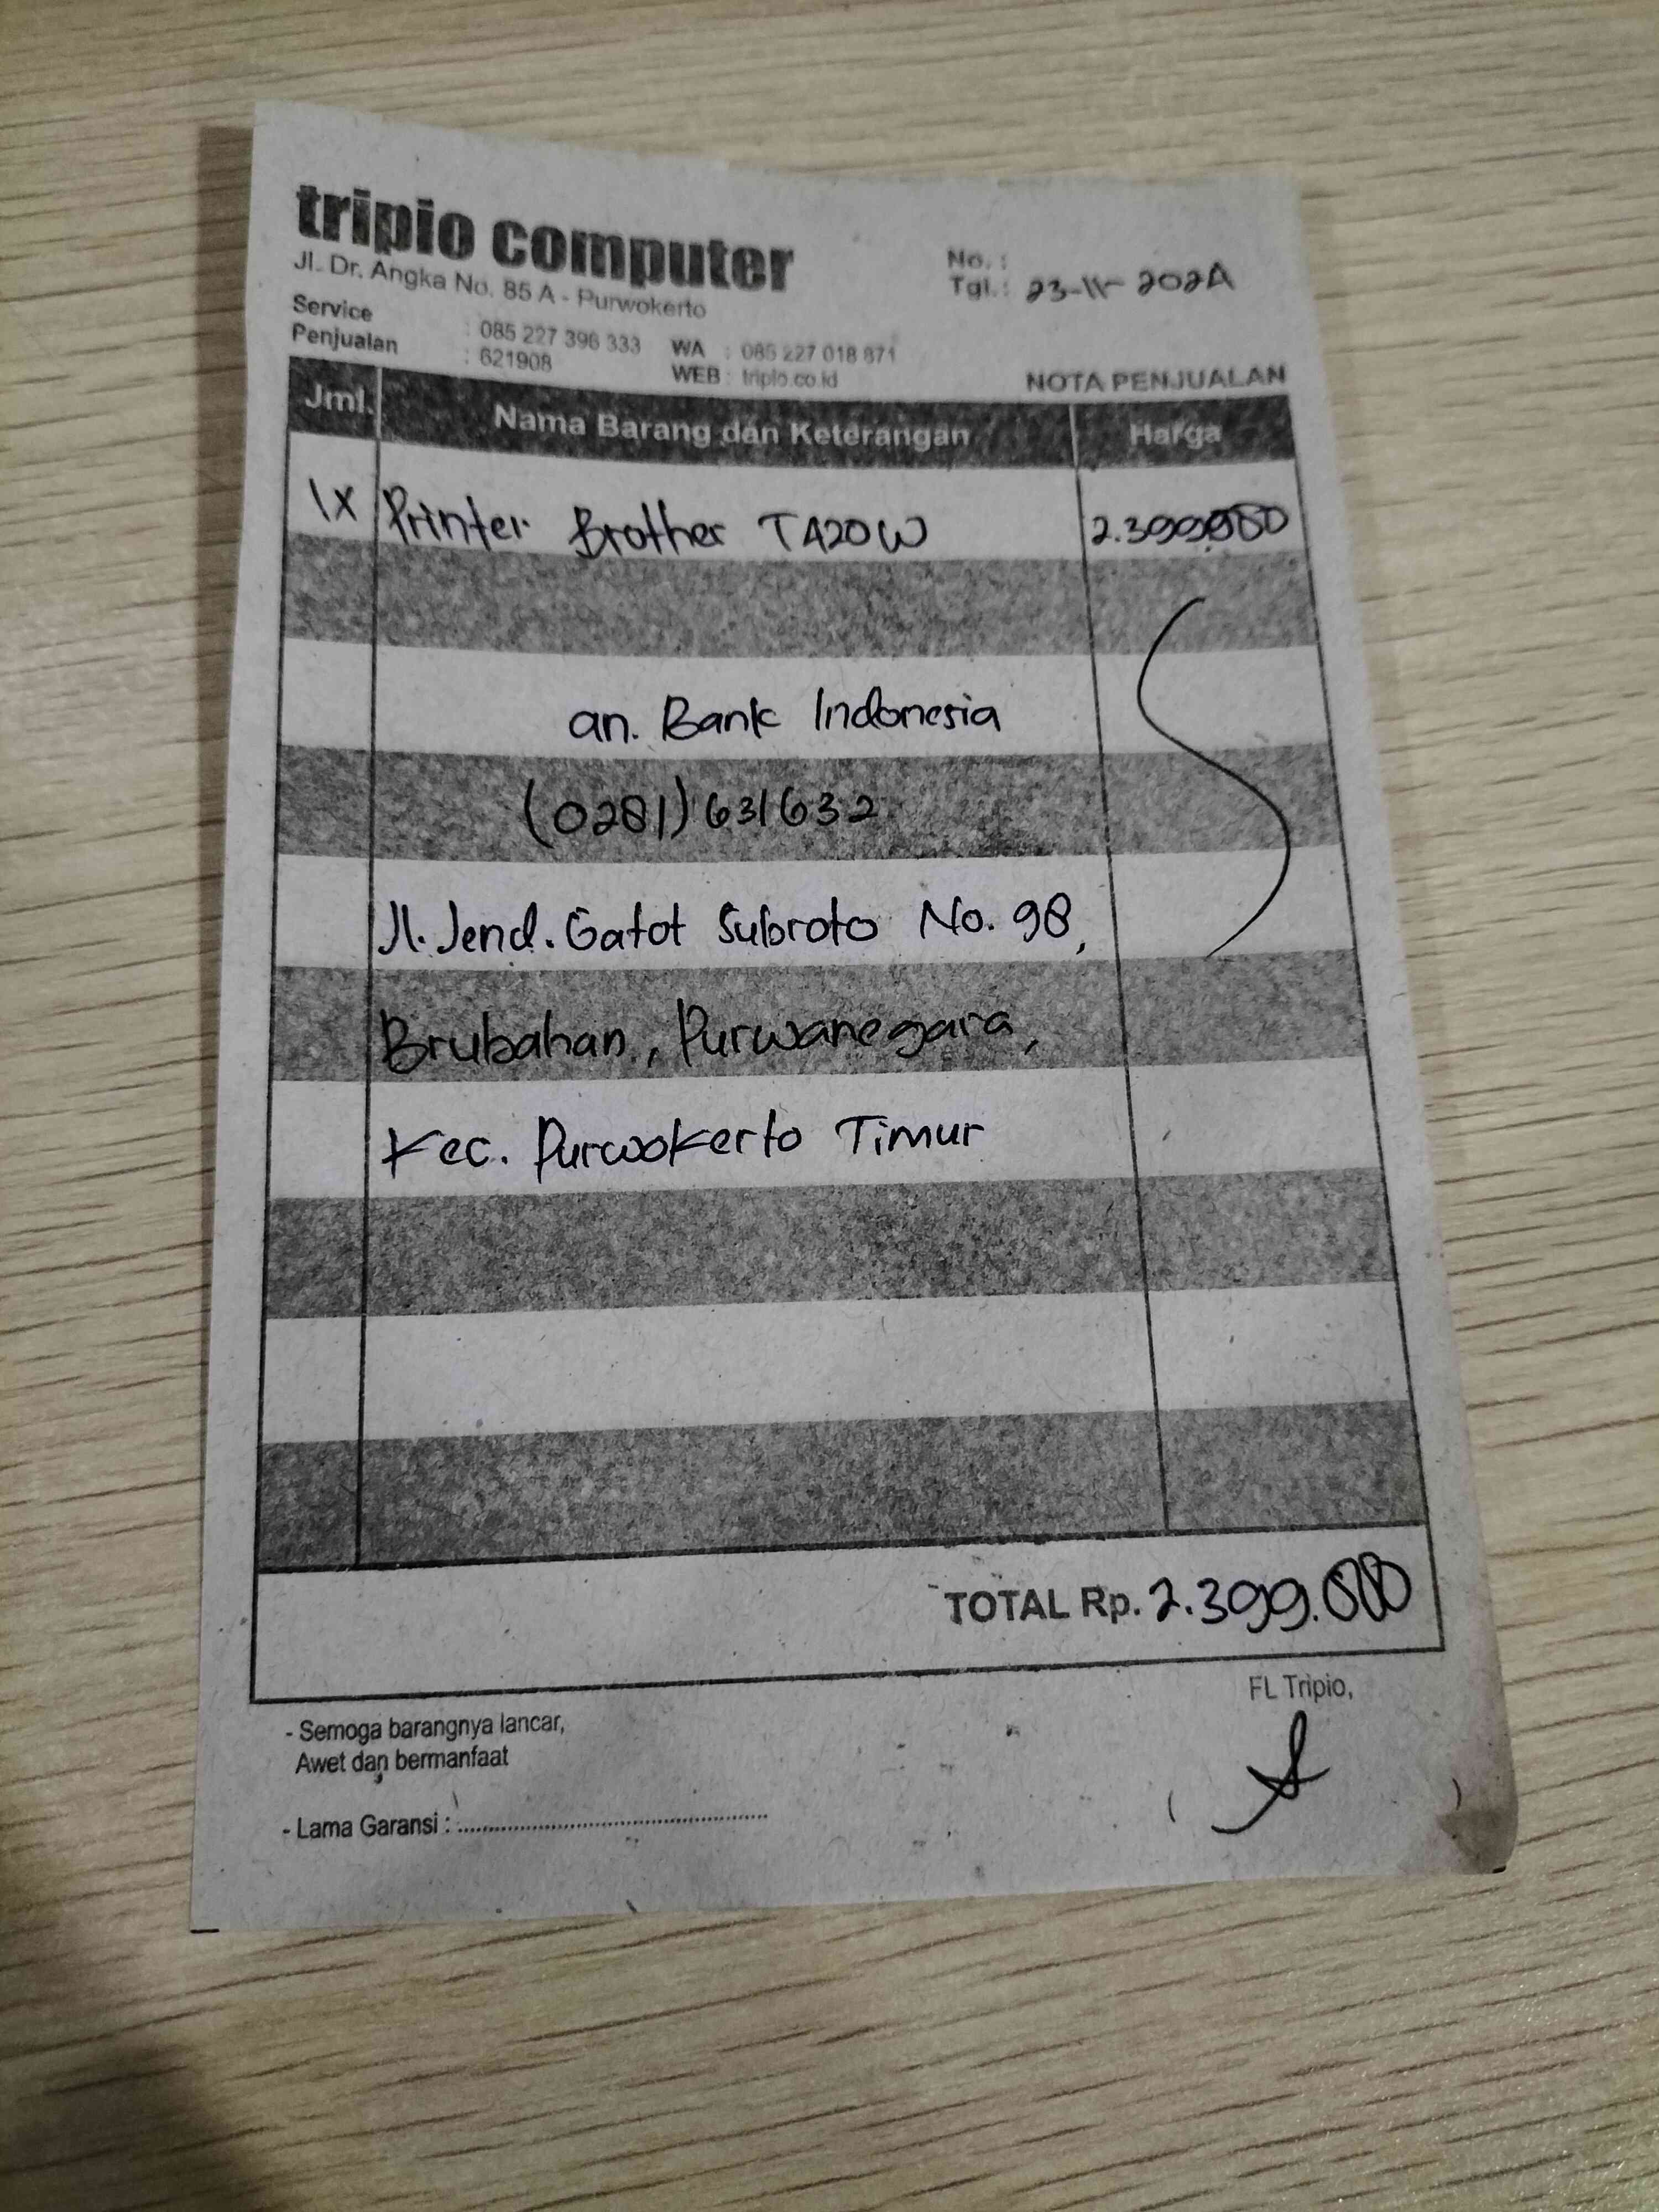 tripio computer
Jl. Dr. Angka No. 85 A - Purwokerto
Service : 085 227 396 333 WA : 085 227 018 871
Penjualan : 621908 WEB : tripio.co.id
No. :
Tgl. : 23-11-2024
NOTA PENJUALAN
Jml. Nama Barang dan Keterangan Harga
1x Printer Brother T420W 2.399.000
an. Bank Indonesia
(0281) 631632
Jl. Jend. Gatot Subroto No. 98,
Brubahan, Purwanegara,
Kec. Purwokerto Timur
TOTAL Rp. 2.399.000
FL Tripio,
- Semoga barangnya lancar,
Awet dan bermanfaat
- Lama Garansi : ........................................
( )